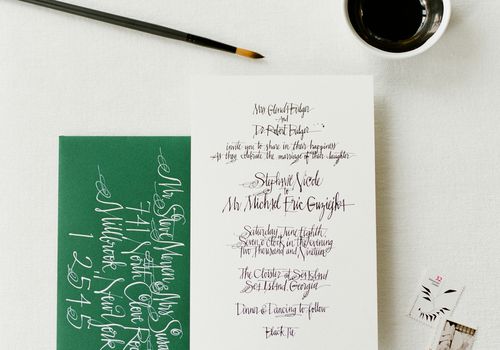 Mrs Glenda
And
Dr Robert
invite you to share in their happiness
as they celebrate the marriage of their daughter
Stephanie Nicole
to
Mr Michael Eric
Saturday, June Eighth,
Seven o'clock in the evening
Two Thousand and Nineteen
The Cloister at Sea Island
Sea Island, Georgia
Dinner & Dancing to follow
Black Tie
Mr Steve Mrs
741 North
Millbrook New York
1 2545